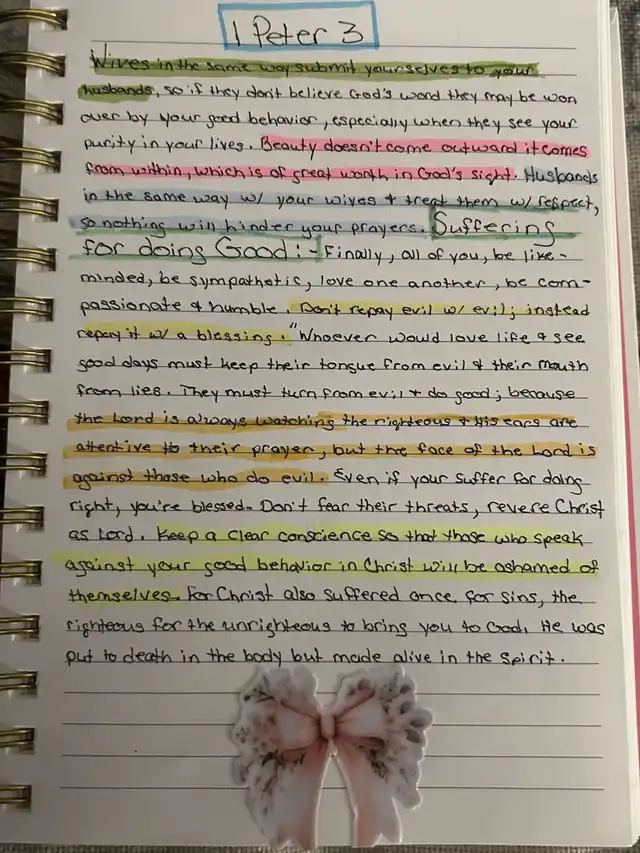 1 Peter 3
Wives in the same way submit yourselves to your
husbands, so if they don't believe God's word they may be won
over by your good behavior, especially when they see your
purity in your lives. Beauty doesn't come outward it comes
from within, which is of great worth in God's sight. Husbands
in the same way w/ your wives & treat them w/ respect,
so nothing will hinder your prayers. Suffering
for doing Good:- Finally, all of you, be like-
minded, be sympathetic, love one another, be com-
passionate & humble. Don't repay evil w/ evil; instead
repay it w/ a blessing. "Whoever would love life & see
good days must keep their tongue from evil & their mouth
from lies. They must turn from evil & do good; because
the Lord is always watching the righteous & His ears are
attentive to their prayer, but the face of the Lord is
against those who do evil. Even if your suffer for doing
right, you're blessed. Don't fear their threats, revere Christ
as Lord. Keep a clear conscience so that those who speak
against your good behavior in Christ will be ashamed of
themselves. For Christ also suffered once for sins, the
righteous for the unrighteous to bring you to God. He was
put to death in the body but made alive in the Spirit.